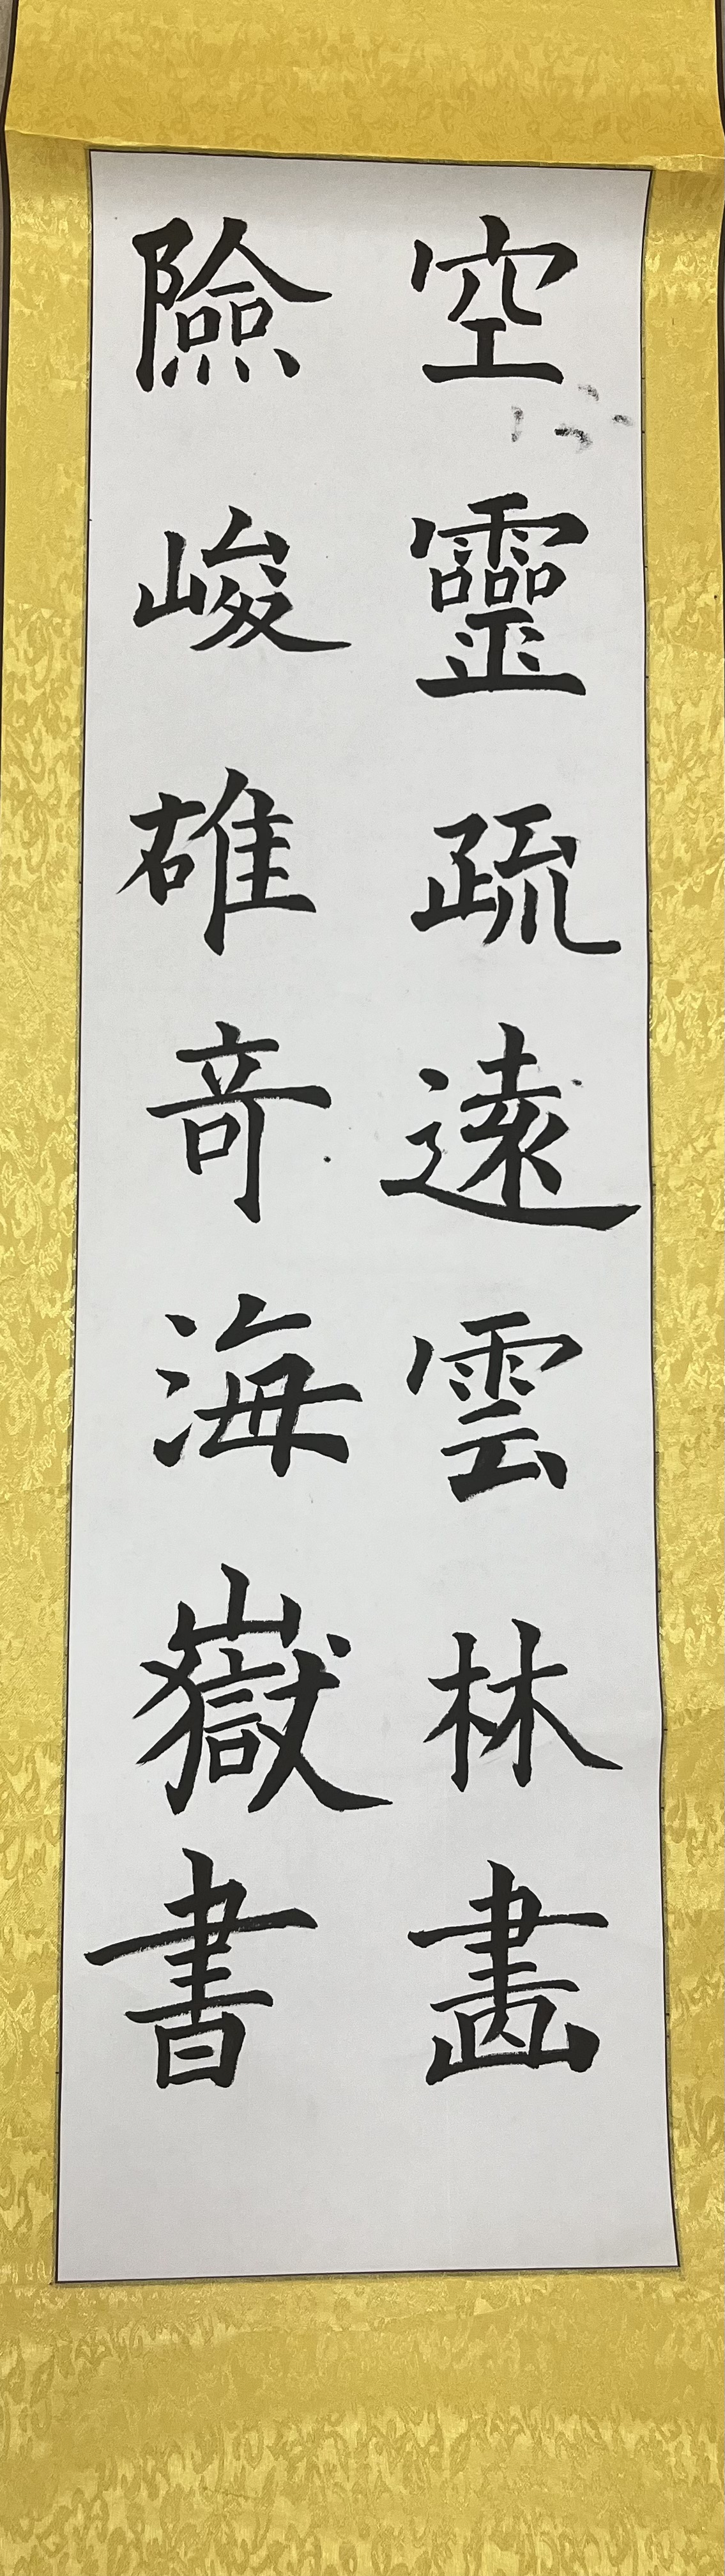 空靈疏遠雲林畫
險峻雄奇海嶽書